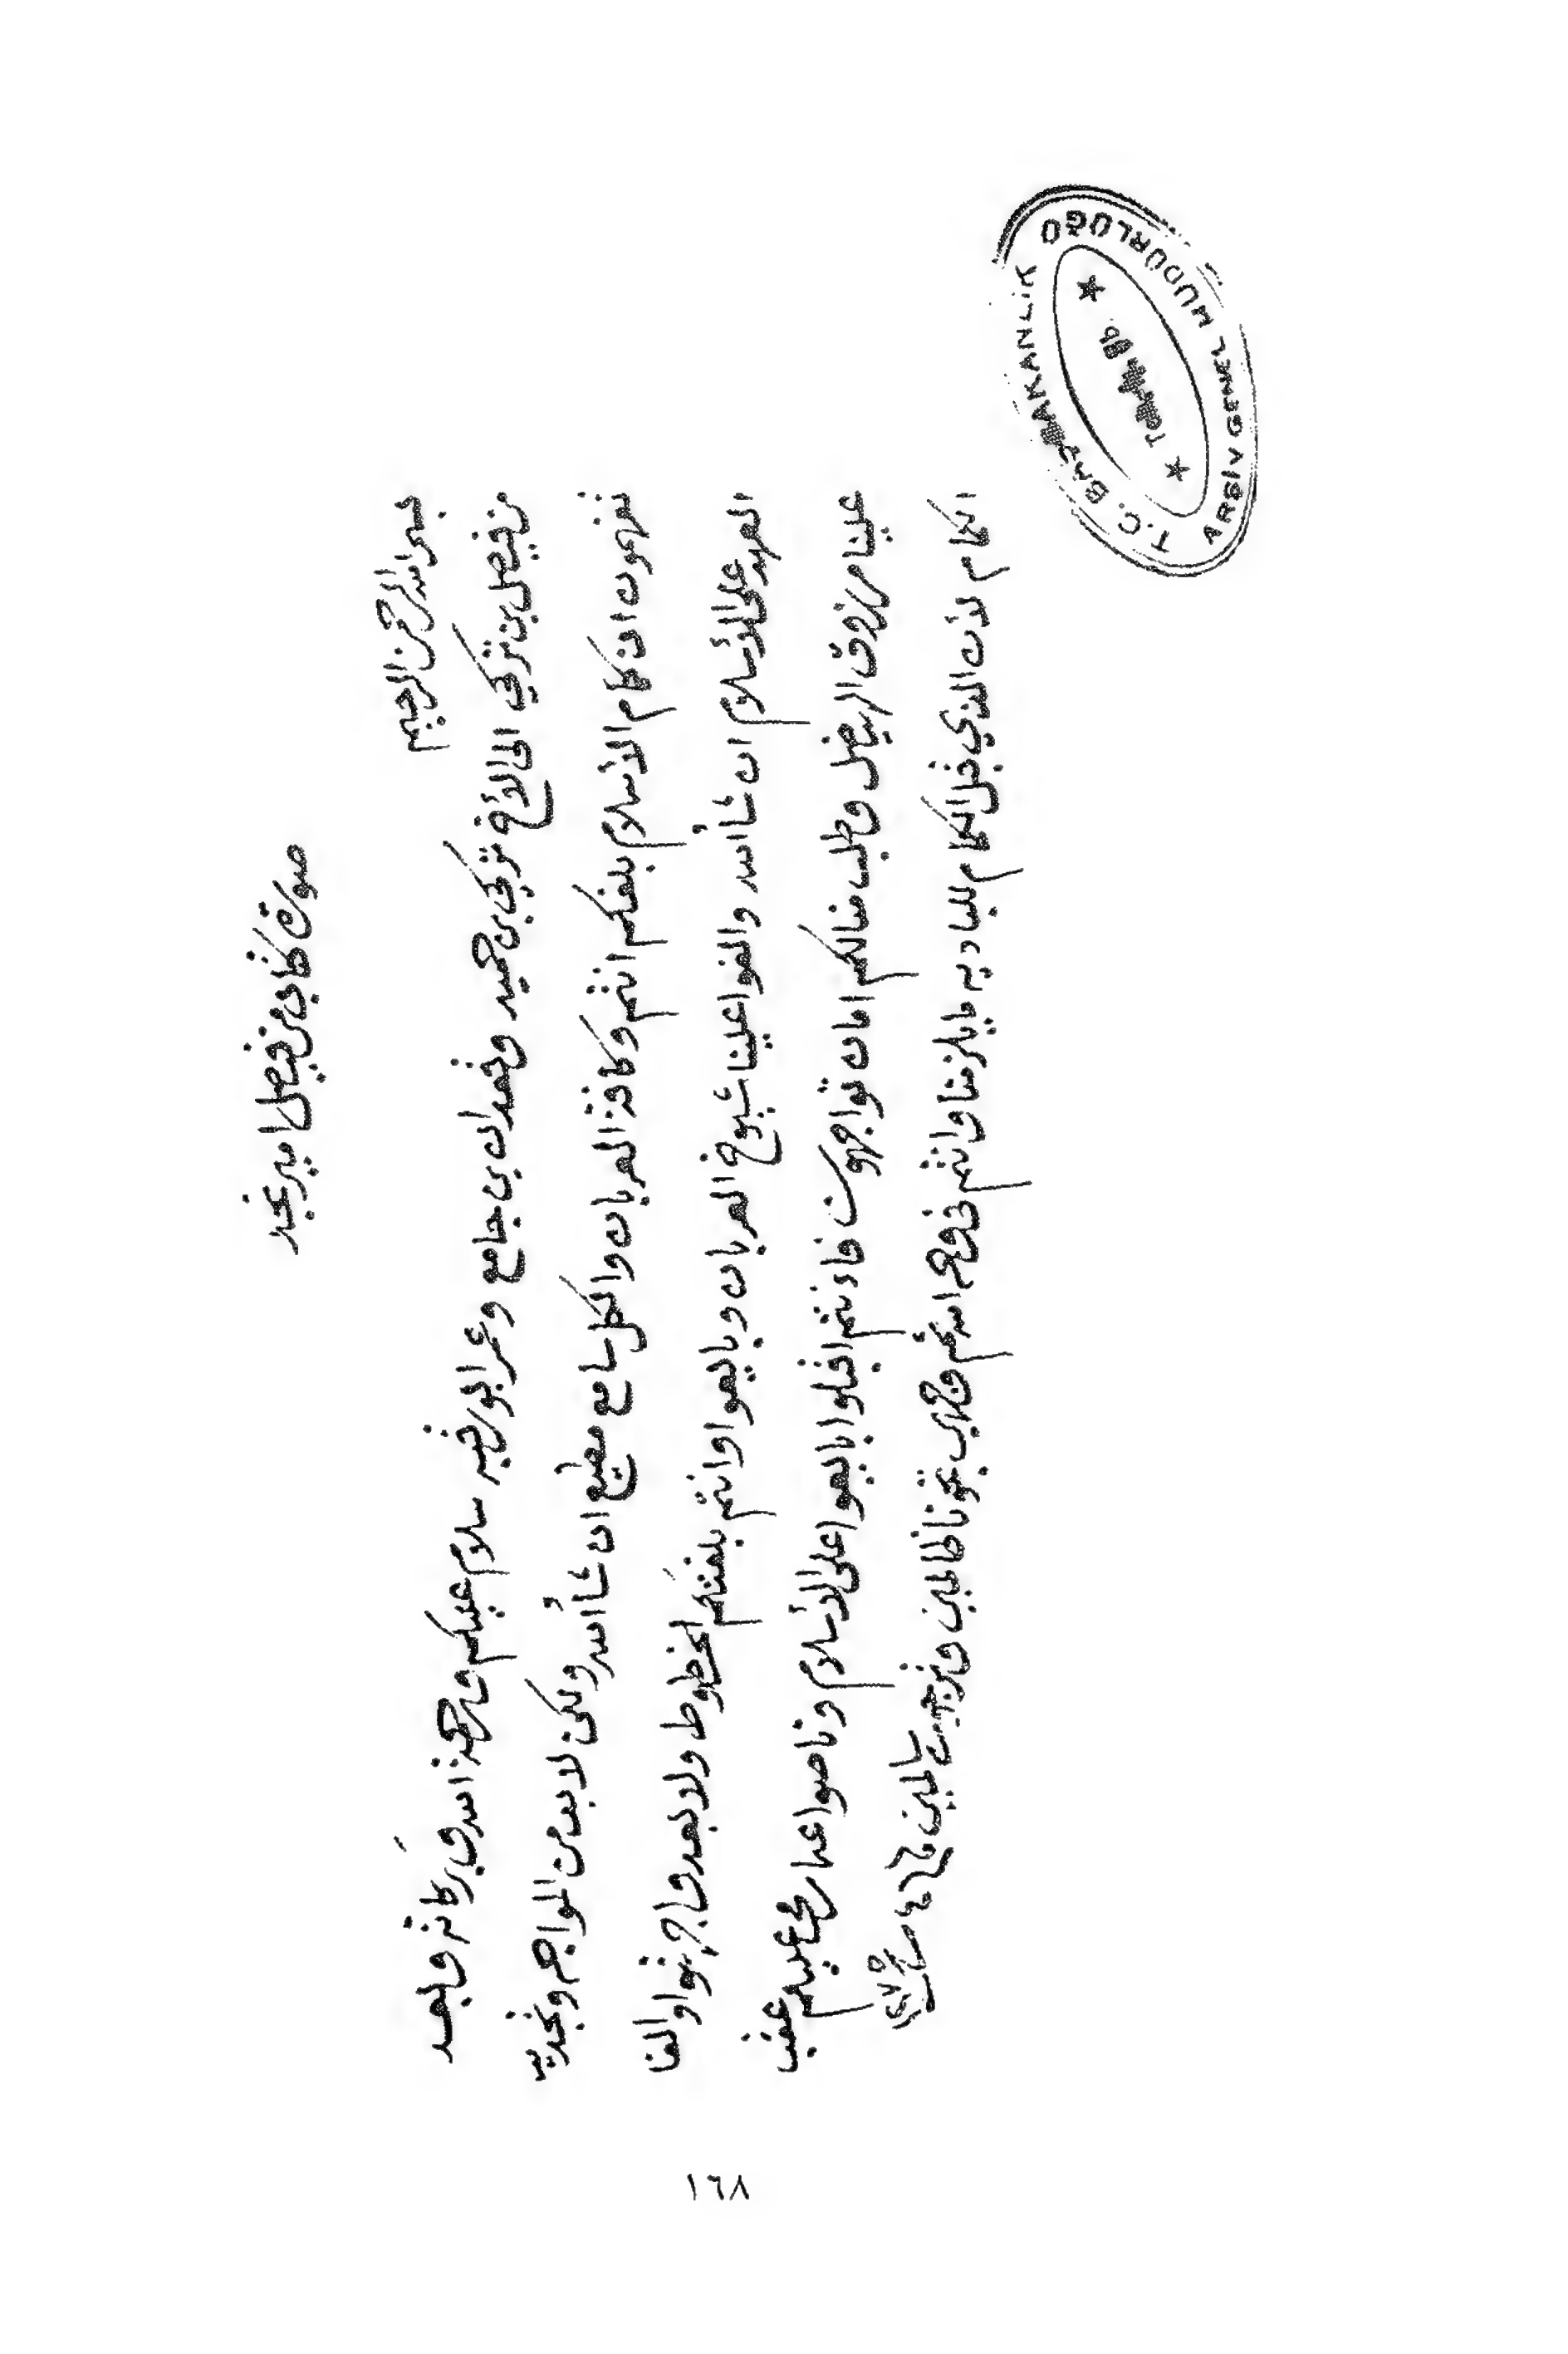 صورة كتابي من فيصل امير نجد
بسم الله الرحمن الرحيم
من فيصل بن تركي الى الأخ تركي بن حميد وفهدان بن جامع وعمر ابو رقبه سلام عليكم ورحمة الله وبركاته وبعد
تفهمون ان كام الأسلام بلغكم انتم وكافة العربان والكل سامع مطيع ان شأالله ولكن لا بد من المواجه ونجديه
العهد على الأسلام ان شأالله والفوا علينا شيوخ العربان وبايعوا وانتم بلغتكم الخطوط ولا بعد واجهتوا والفا
علينا مرزوق الهيضل وطلب منا لكم امان تواجهون فاء نتم اقبلوا بايعوا على الأسلام وناصوا عليكم عقب
الكام لأن الذي قبل الكام للباديه ما يلزمنا وانتم في وجه الله ثم وجهي تجونا ظالمين وترجعون سالمين
١٦٨
T.C. BAŞBAKANLIK
ARŞİV GENEL MÜDÜRLÜĞÜ